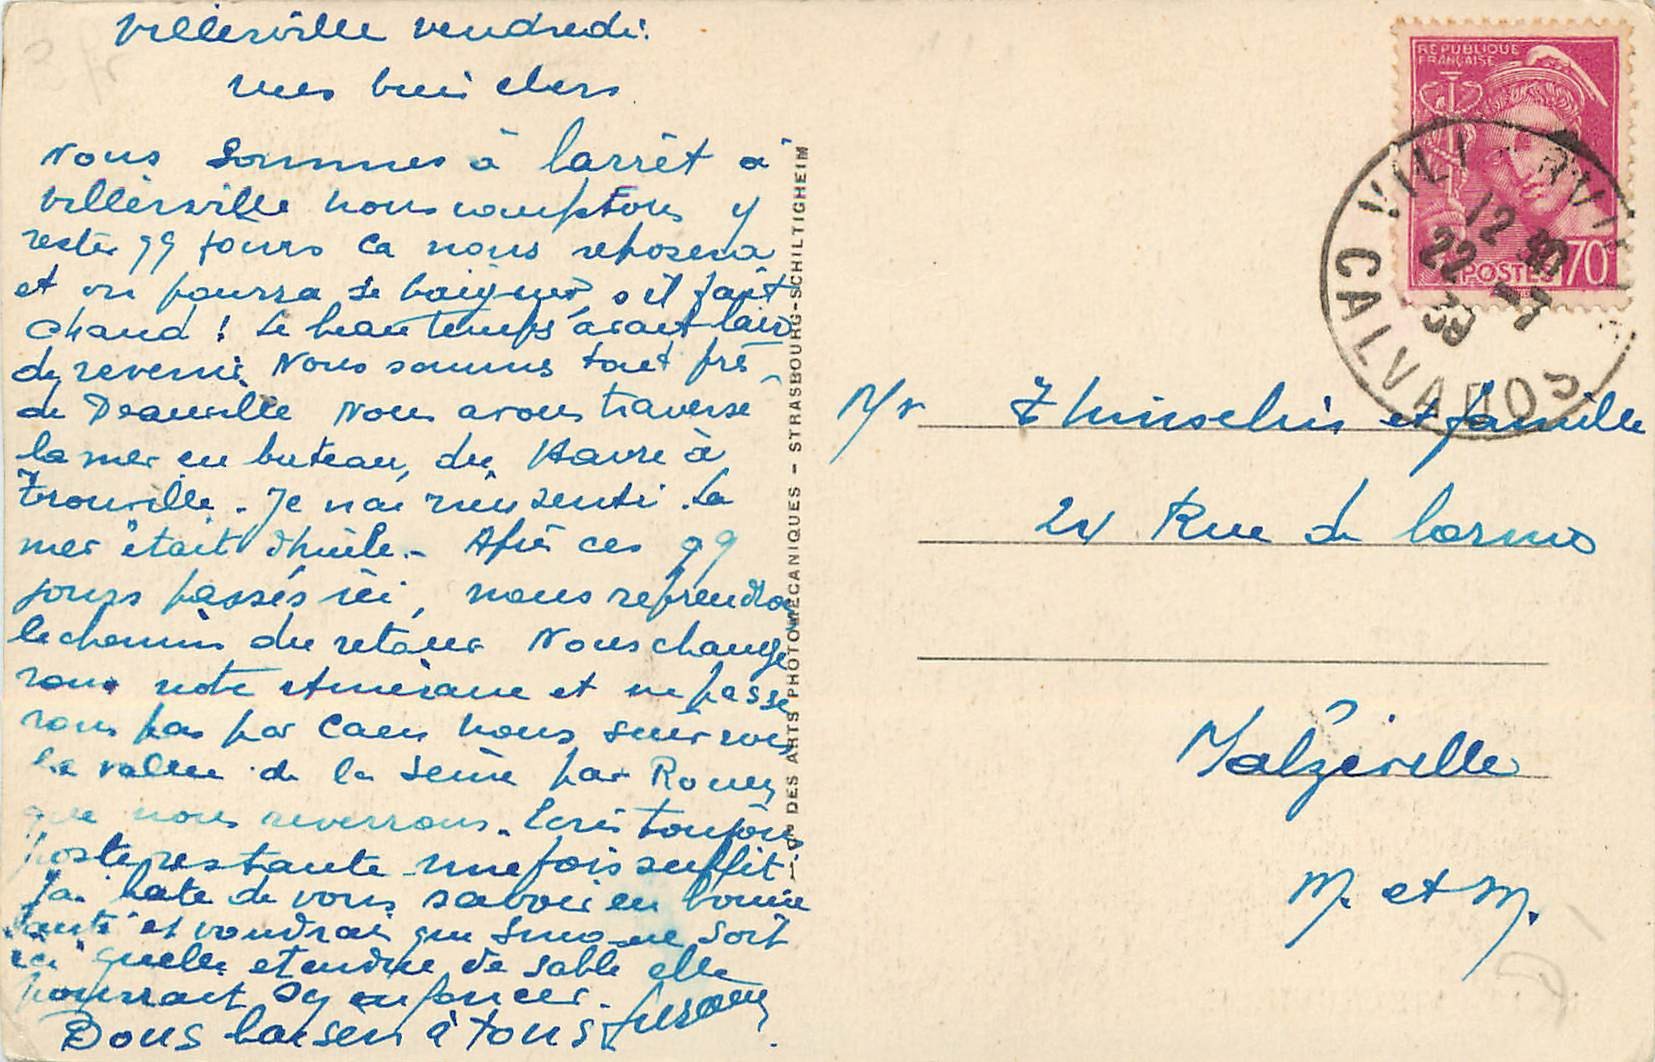 Villerville vendredi.
mes bien chers
Nous sommes à larrêt à
Villerville nous comptons y
rester qq jours Ca nous reposera
et on pourra se baigner s il fait
chaud ! Le beau temps àvait lair
de revenir Nous sommes tout près
de Deauville Nous avons traversé
la mer en bateau, du Havre à
Trouville. Je n ai rien senti. La
mer était d'huile. - Après ces qq
jours passés ici, nous reprendrons
le chemin du retour Nous change
rons notre itinéraire et ne passe
rons pas par Caen Nous suivrons
la vallée de la Seine par Rouen
que nous reverrons. Ecris toujours
poste restante une fois suffit.
J ai hate de vous savoir en bonne
santé et voudrais que Simone soit
ici quelle etendue de sable elle
pourrait sy enfoncer.
Bons baisers à tous
— DES ARTS PHOTOMÉCANIQUES - STRASBOURG-SCHILTIGHEIM
REPUBLIQUE
FRANÇAISE
POSTES 70
12
22 -7
39
CALVADOS
Mr et famille
24 Rue de
Malzéville
M. et M.